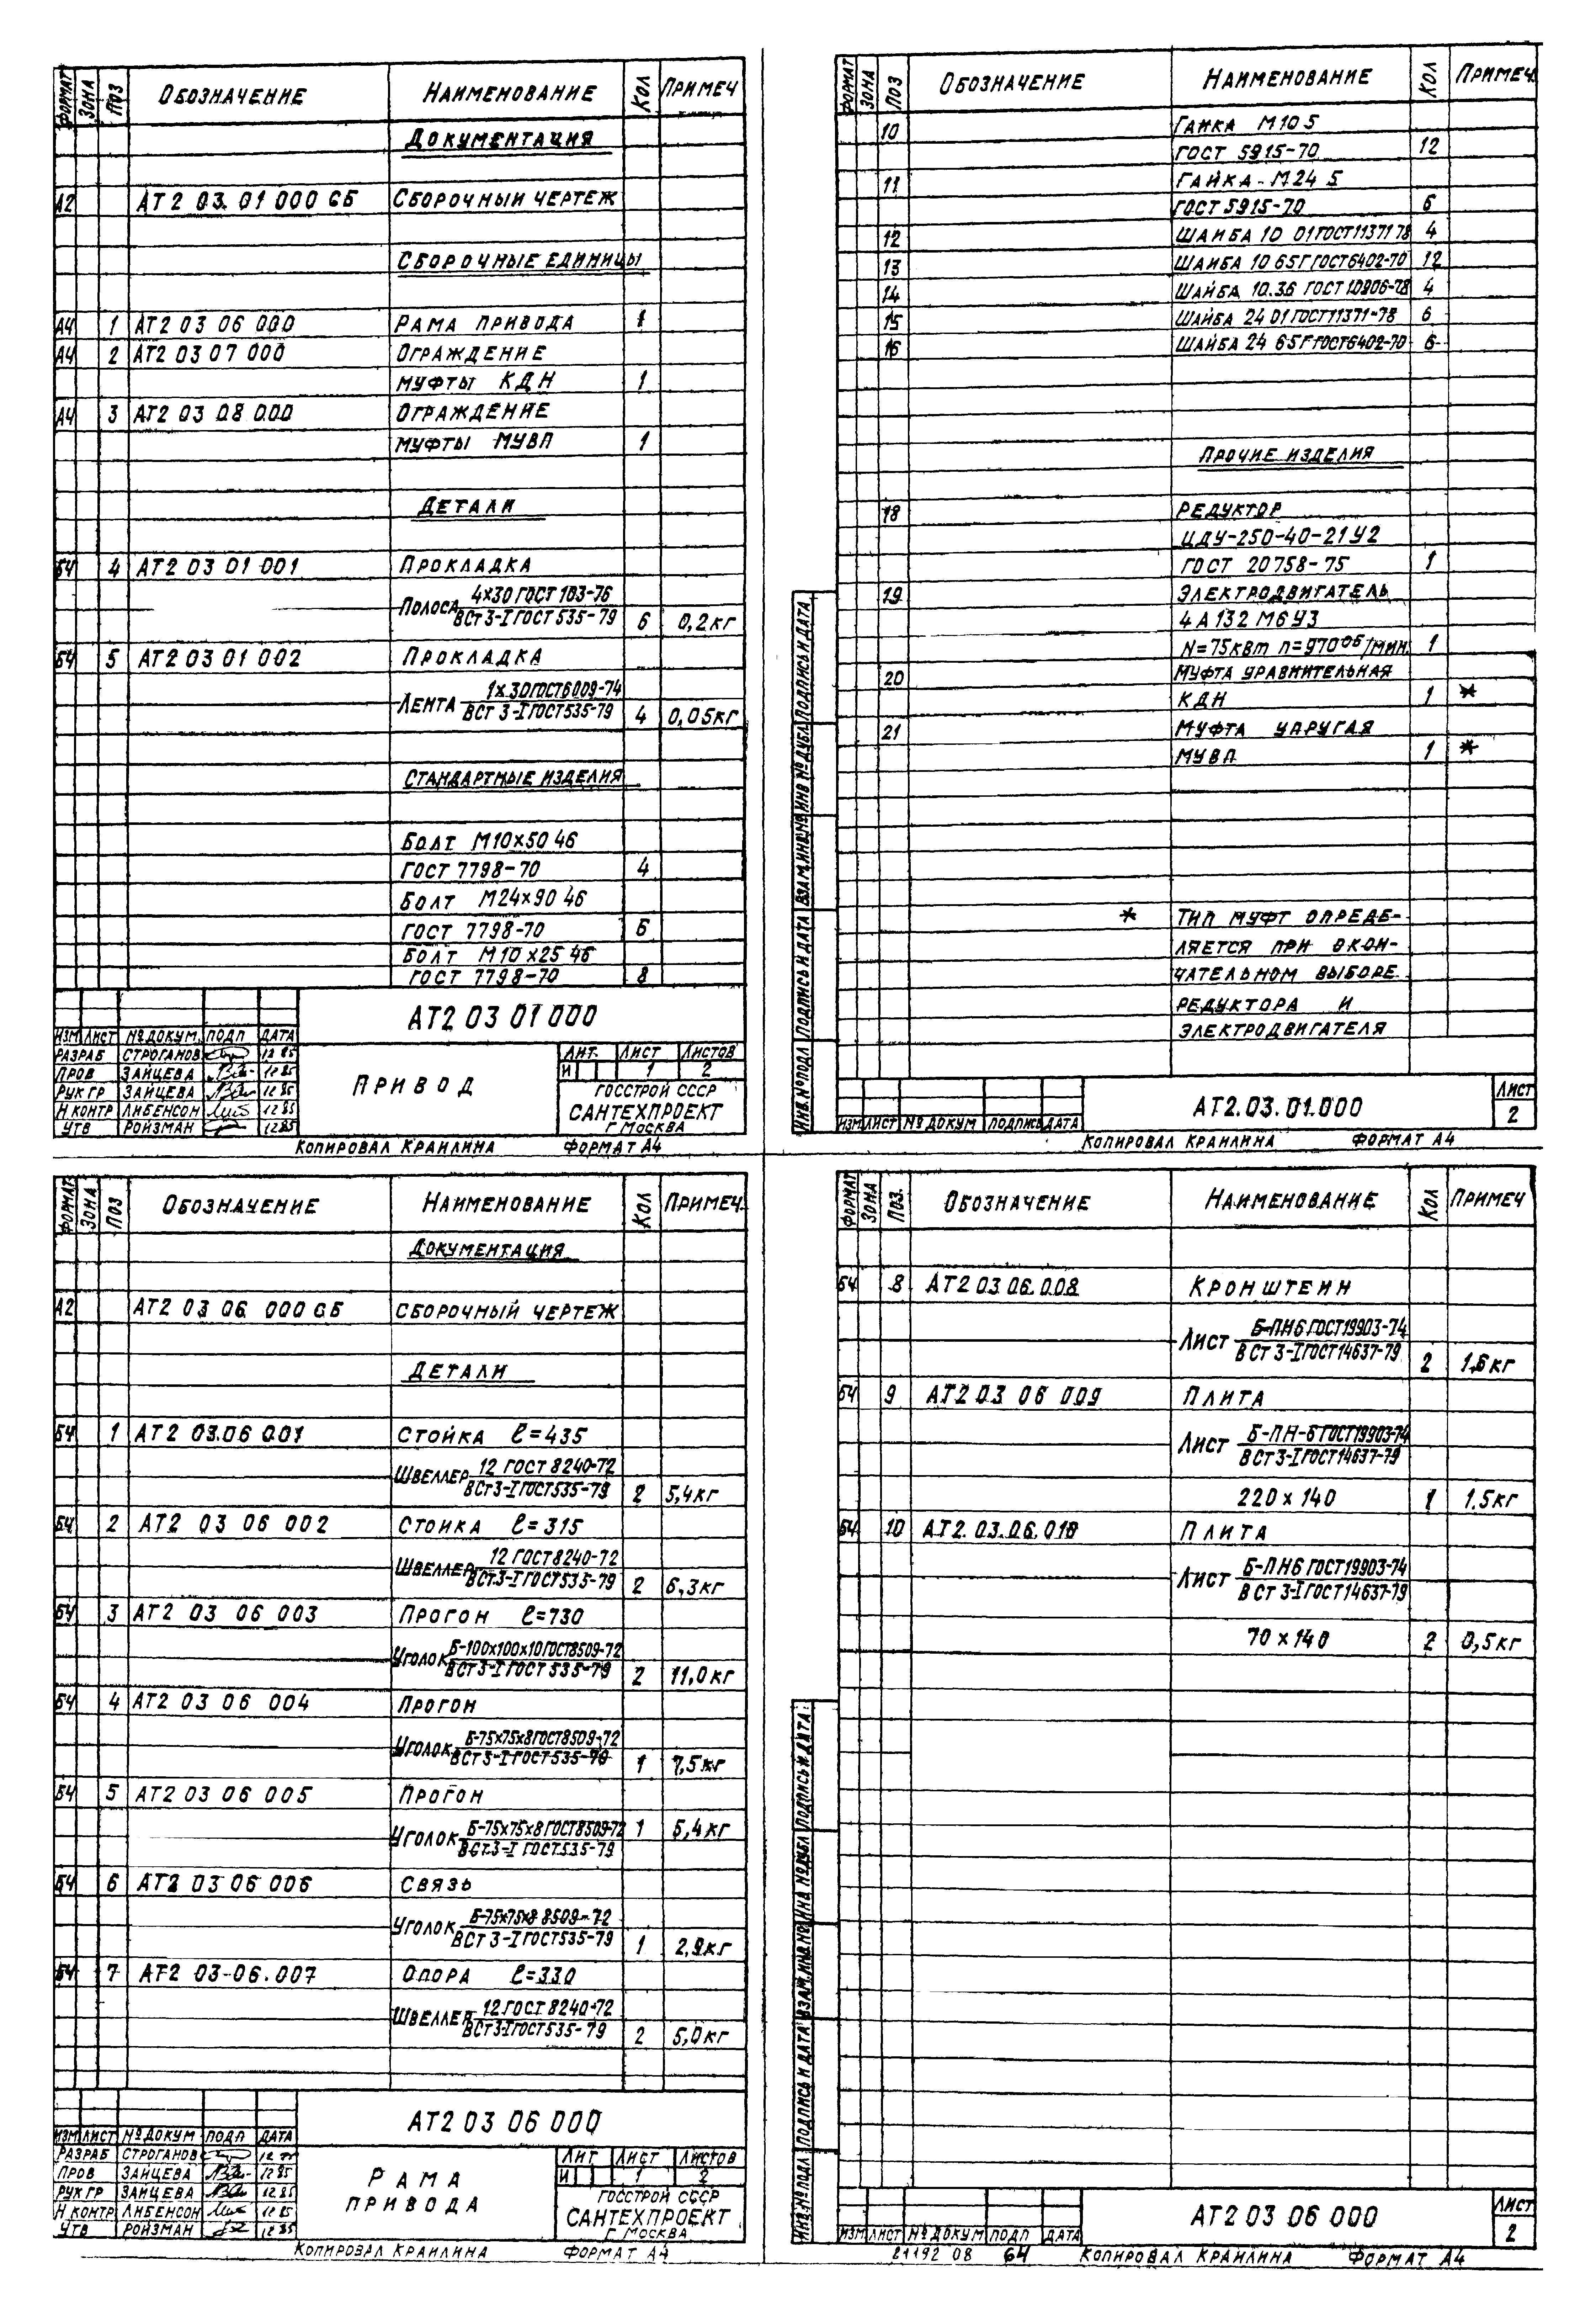 ФОРМАТ ЗОНА ПОЗ ОБОЗНАЧЕНИЕ НАИМЕНОВАНИЕ КОЛ ПРИМЕЧ
ДОКУМЕНТАЦИЯ
А2 АТ2 03. 01 000 СБ СБОРОЧНЫЙ ЧЕРТЕЖ
СБОРОЧНЫЕ ЕДИНИЦЫ
А4 1 АТ2 03 06 000 РАМА ПРИВОДА 1
А4 2 АТ2 03 07 000 ОГРАЖДЕНИЕ
МУФТЫ КДН 1
А4 3 АТ2 03 08 000 ОГРАЖДЕНИЕ
МУФТЫ МУВП 1
ДЕТАЛИ
БЧ 4 АТ2 03 01 001 ПРОКЛАДКА
ПОЛОСА 4х30 ГОСТ 103-76
ВСт3-I ГОСТ 535-79 6 0,2кг
БЧ 5 АТ2 03 01 002 ПРОКЛАДКА
ЛЕНТА 1х30 ГОСТ 6009-74
ВСТ 3-I ГОСТ 535-79 4 0,05кг
СТАНДАРТНЫЕ ИЗДЕЛИЯ
БОЛТ М10х50 46
ГОСТ 7798-70 4
БОЛТ М24х90 46
ГОСТ 7798-70 6
БОЛТ М10х25 46
ГОСТ 7798-70 8
АТ2 03 01 000
ИЗМ ЛИСТ № ДОКУМ. ПОДП ДАТА
РАЗРАБ СТРОГАНОВ 12 85
ПРОВ ЗАЙЦЕВА 12 85
РУК ГР ЗАЙЦЕВА 12 85
Н КОНТР ЛИБЕНСОН 12 85
УТВ РОЙЗМАН 12 85
ПРИВОД
ЛИТ. ЛИСТ ЛИСТОВ
И 1 2
ГОССТРОЙ СССР
САНТЕХПРОЕКТ
Г МОСКВА
КОПИРОВАЛ КРАИЛИНА ФОРМАТ А4
ФОРМАТ ЗОНА ПОЗ ОБОЗНАЧЕНИЕ НАИМЕНОВАНИЕ КОЛ ПРИМЕЧ.
10 ГАЙКА М10 5
ГОСТ 5915-70 12
11 ГАЙКА-М24 5
ГОСТ 5915-70 6
12 ШАЙБА 10 01 ГОСТ 11371 78 4
13 ШАЙБА 10 65Г ГОСТ 6402-70 12
14 ШАЙБА 10.36 ГОСТ 10906-78 4
15 ШАЙБА 24 01 ГОСТ 11371-78 6
16 ШАЙБА 24 65Г ГОСТ 6402-70 6
ПРОЧИЕ ИЗДЕЛИЯ
18 РЕДУКТОР
ЦДУ-250-40-21У2
ГОСТ 20758-75 1
19 ЭЛЕКТРОДВИГАТЕЛЬ
4А132 М6У3
N=75квт n=970об/мин 1
20 МУФТА УРАВНИТЕЛЬНАЯ
КДН 1 *
21 МУФТА УПРУГАЯ
МУВП 1 *
* ТИП МУФТ ОПРЕДЕ-
ЛЯЕТСЯ ПРИ ОКОН-
ЧАТЕЛЬНОМ ВЫБОРЕ
РЕДУКТОРА И
ЭЛЕКТРОДВИГАТЕЛЯ
ИНВ. № ПОДЛ ПОДПИСЬ И ДАТА ВЗАМ. ИНВ. № ИНВ № ДУБЛ ПОДПИСЬ И ДАТА
ИЗМ ЛИСТ № ДОКУМ ПОДПИСЬ ДАТА
АТ2. 03. 01. 000
ЛИСТ
2
КОПИРОВАЛ КРАИЛИНА ФОРМАТ А4
ФОРМАТ ЗОНА ПОЗ ОБОЗНАЧЕНИЕ НАИМЕНОВАНИЕ КОЛ ПРИМЕЧ.
ДОКУМЕНТАЦИЯ
А2 АТ2 03 06 000 СБ СБОРОЧНЫЙ ЧЕРТЕЖ
ДЕТАЛИ
БЧ 1 АТ2 03.06 001 СТОЙКА ℓ=435
ШВЕЛЛЕР 12 ГОСТ 8240-72
ВСт3-I ГОСТ 535-79 2 5,4кг
БЧ 2 АТ2 03 06 002 СТОЙКА ℓ=315
ШВЕЛЛЕР 12 ГОСТ 8240-72
ВСт.3-I ГОСТ 535-79 2 6,3кг
БЧ 3 АТ2 03 06 003 ПРОГОН ℓ=730
УГОЛОК Б-100х100х10 ГОСТ 8509-72
ВСт3-I ГОСТ 535-79 2 11,0кг
БЧ 4 АТ2 03 06 004 ПРОГОН
УГОЛОК Б-75х75х8 ГОСТ 8509-72
ВСТ 3-I ГОСТ 535-79 1 7,5кг
БЧ 5 АТ2 03 06 005 ПРОГОН
УГОЛОК Б-75х75х8 ГОСТ 8509-72 1 5,4кг
ВСт.3-I ГОСТ.535-79
БЧ 6 АТ2 03 06 006 СВЯЗЬ
УГОЛОК Б-75х75х8 8509-72
ВСТ 3-I ГОСТ 535-79 1 2,9кг
БЧ 7 АТ2 03-06.007 ОПОРА ℓ=330
ШВЕЛЛЕР 12 ГОСТ 8240-72
ВСт3-I ГОСТ 535-79 2 5,0кг
АТ2 03 06 000
ИЗМ ЛИСТ № ДОКУМ ПОДП ДАТА
РАЗРАБ СТРОГАНОВ
ПРОВ ЗАЙЦЕВА 12 85
РУК ГР ЗАЙЦЕВА 12 85
Н КОНТР ЛИБЕНСОН 12 85
УТВ РОЙЗМАН 12 85
РАМА
ПРИВОДА
ЛИТ ЛИСТ ЛИСТОВ
И 1 2
ГОССТРОЙ СССР
САНТЕХПРОЕКТ
Г. МОСКВА
КОПИРОВАЛ КРАИЛИНА ФОРМАТ А4
ФОРМАТ ЗОНА ПОЗ. ОБОЗНАЧЕНИЕ НАИМЕНОВАНИЕ КОЛ ПРИМЕЧ
БЧ 8 АТ2 03 06. 008 КРОНШТЕЙН
ЛИСТ Б-ПН6 ГОСТ 19903-74
ВСт 3-I ГОСТ 14637-79 2 1,6кг
БЧ 9 АТ2 03 06 009 ПЛИТА
ЛИСТ Б-ПН-6 ГОСТ 19903-74
ВСт3-I ГОСТ 14637-79
220 х 140 1 1.5кг
БЧ 10 АТ2. 03. 06. 010 ПЛИТА
ЛИСТ Б-ПН6 ГОСТ 19903-74
ВСт 3-I ГОСТ 14637-79
70 х 140 2 0,5кг
ИНВ. № ПОДЛ ПОДПИСЬ И ДАТА ВЗАМ. ИНВ. № ИНВ. № ДУБЛ ПОДПИСЬ И ДАТА
ИЗМ ЛИСТ № ДОКУМ ПОДП ДАТА
АТ2 03 06 000
ЛИСТ
2
21192 08 64 КОПИРОВАЛ КРАИЛИНА ФОРМАТ А4